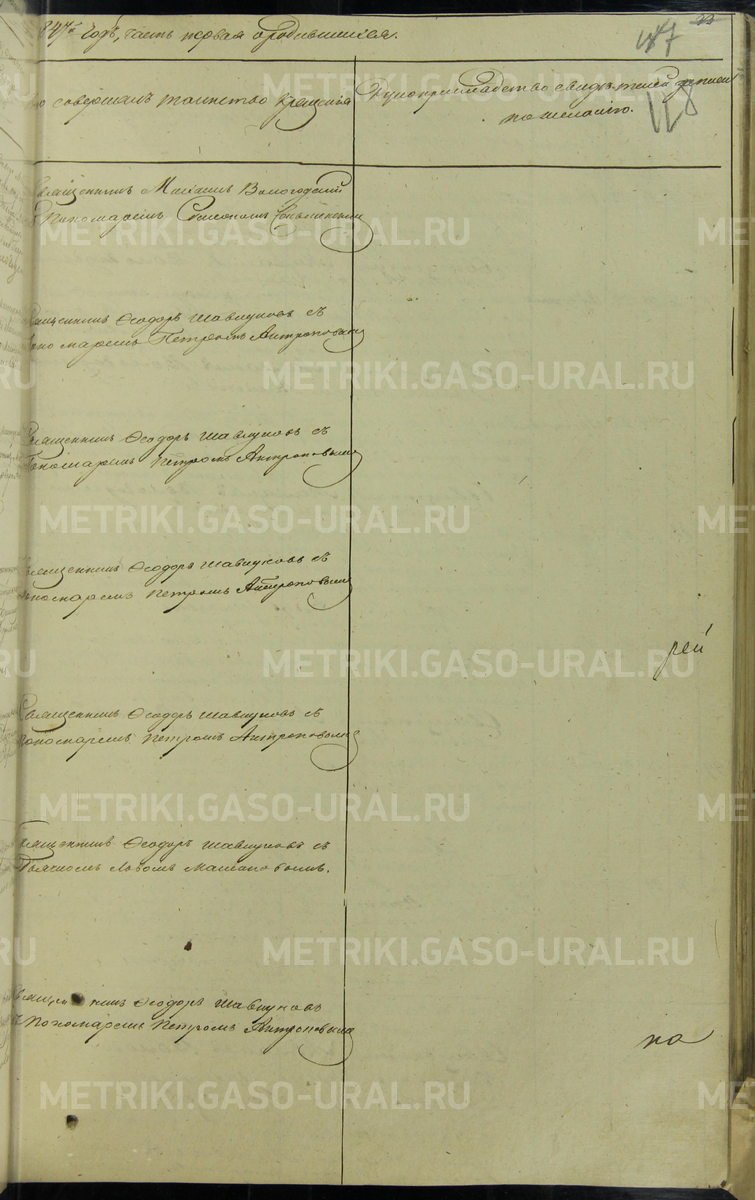 847 годъ, часть первая о родившихся.
187
23
118
то совершалъ таинство крещенія
Рукоприкладство свидѣтелей записи
по желанію.
священникъ Михаилъ Вологодскій
Пономаремъ
священникъ Ѳеодоръ Шавнуковъ съ
пономаремъ Петромъ Антроповымъ
Священникъ Ѳеодоръ Шавнуковъ съ
Пономаремъ Петромъ Антроповымъ
священникъ Ѳеодоръ Шавнуковъ съ
пономаремъ Петромъ Антроповымъ
рей
Священникъ Ѳеодоръ Шавнуковъ съ
пономаремъ Петромъ Антроповымъ
священникъ Ѳеодоръ Шавнуковъ съ
Дьячкомъ
священникъ Ѳеодоръ Шавнуковъ
съ Пономаремъ Петромъ Антроповымъ
на
METRIKI.GASO-URAL.RU